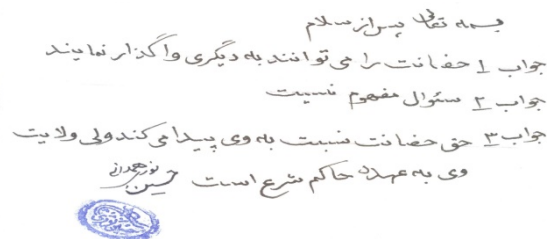 بسمه تعالی پس از سلام
جواب 1 حضانت را می توانند به دیگری واگذار نمایند
جواب 2 سئوال مفهوم نیست
جواب 3 حق حضانت نسبت به وی پیدا می کند ولی ولایت
وی به عهده حاکم شرع است حسین نوری همدانی